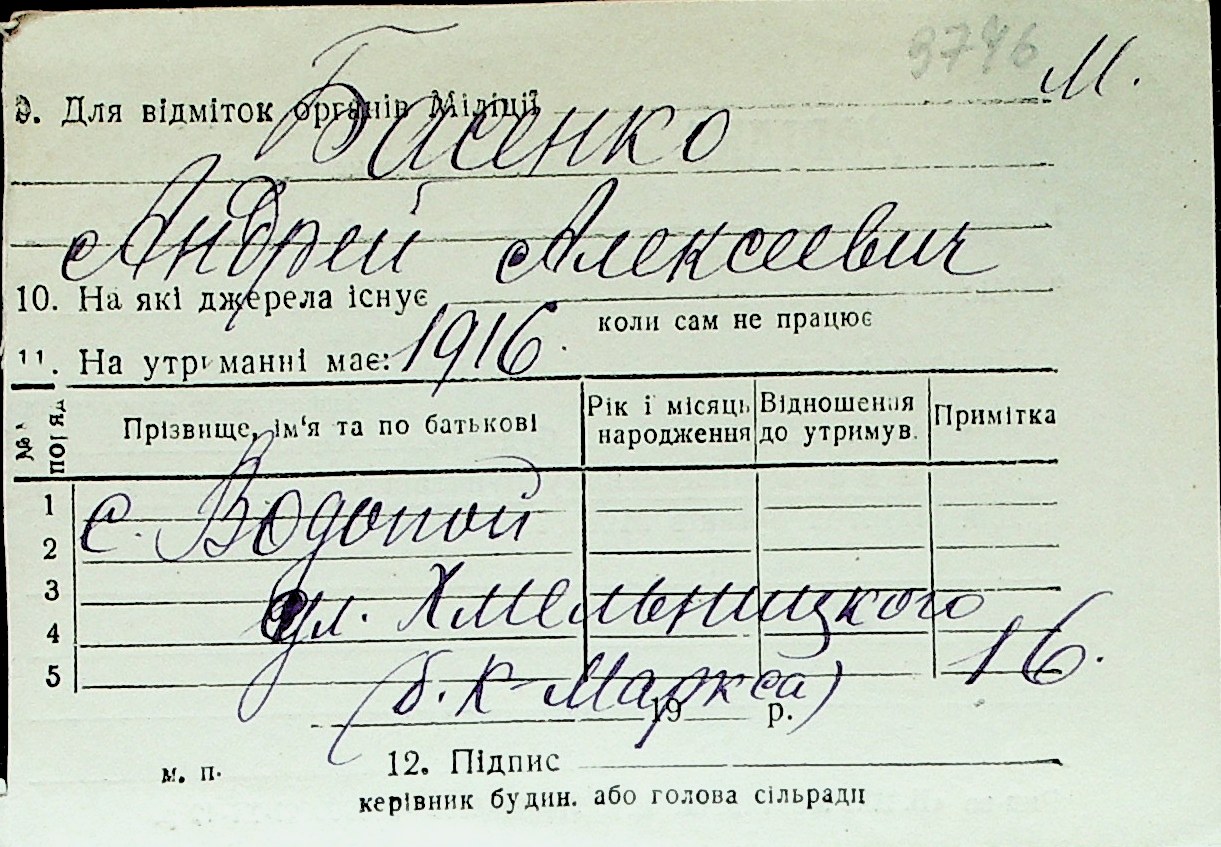 9746
М.
9. Для відміток органів Міліції
Басенко
Андрей Алексеевич
10. На які джерела існує
коли сам не працює
11. На утриманні має: 1916.
№№ поряд
Прізвище, ім‘я та по батькові
Рік і місяць народження
Відношення до утримув.
Примітка
1
с. Водопой
2
3
ул. Хмельницкого
4
16.
5
(б. К-Маркса)
19 р.
м. п.
12. Підпис
керівник будин. або голова сільради